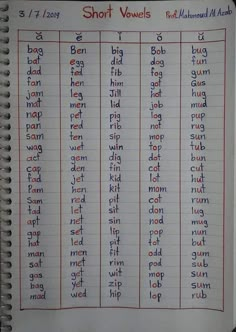 3/7/2019 Short Vowels Prof. Mohammed Al Azab
ă ĕ ĭ ŏ ŭ
bag Ben big Bob bug
bat egg did dog fun
dad fed fib fog gum
fan hen him got Gus
jam leg Jill hot hug
mat men lid job mud
nap pet pig log nut
pan red rib not rug
sam ten sip mop sun
wag wet win top tub
act gem dig dot bun
cap den fin cot cut
fad jet kid lot hut
Pam hen kit mom nut
Sam red pit cot rum
tad let sit don lug
apt net sin nod mug
gap set lip pop nun
hat led pit tot but
man men fit odd gum
mat met rim pod sub
gas get wit mop sun
bag yet zip lob sun
mad wed hip lop rub